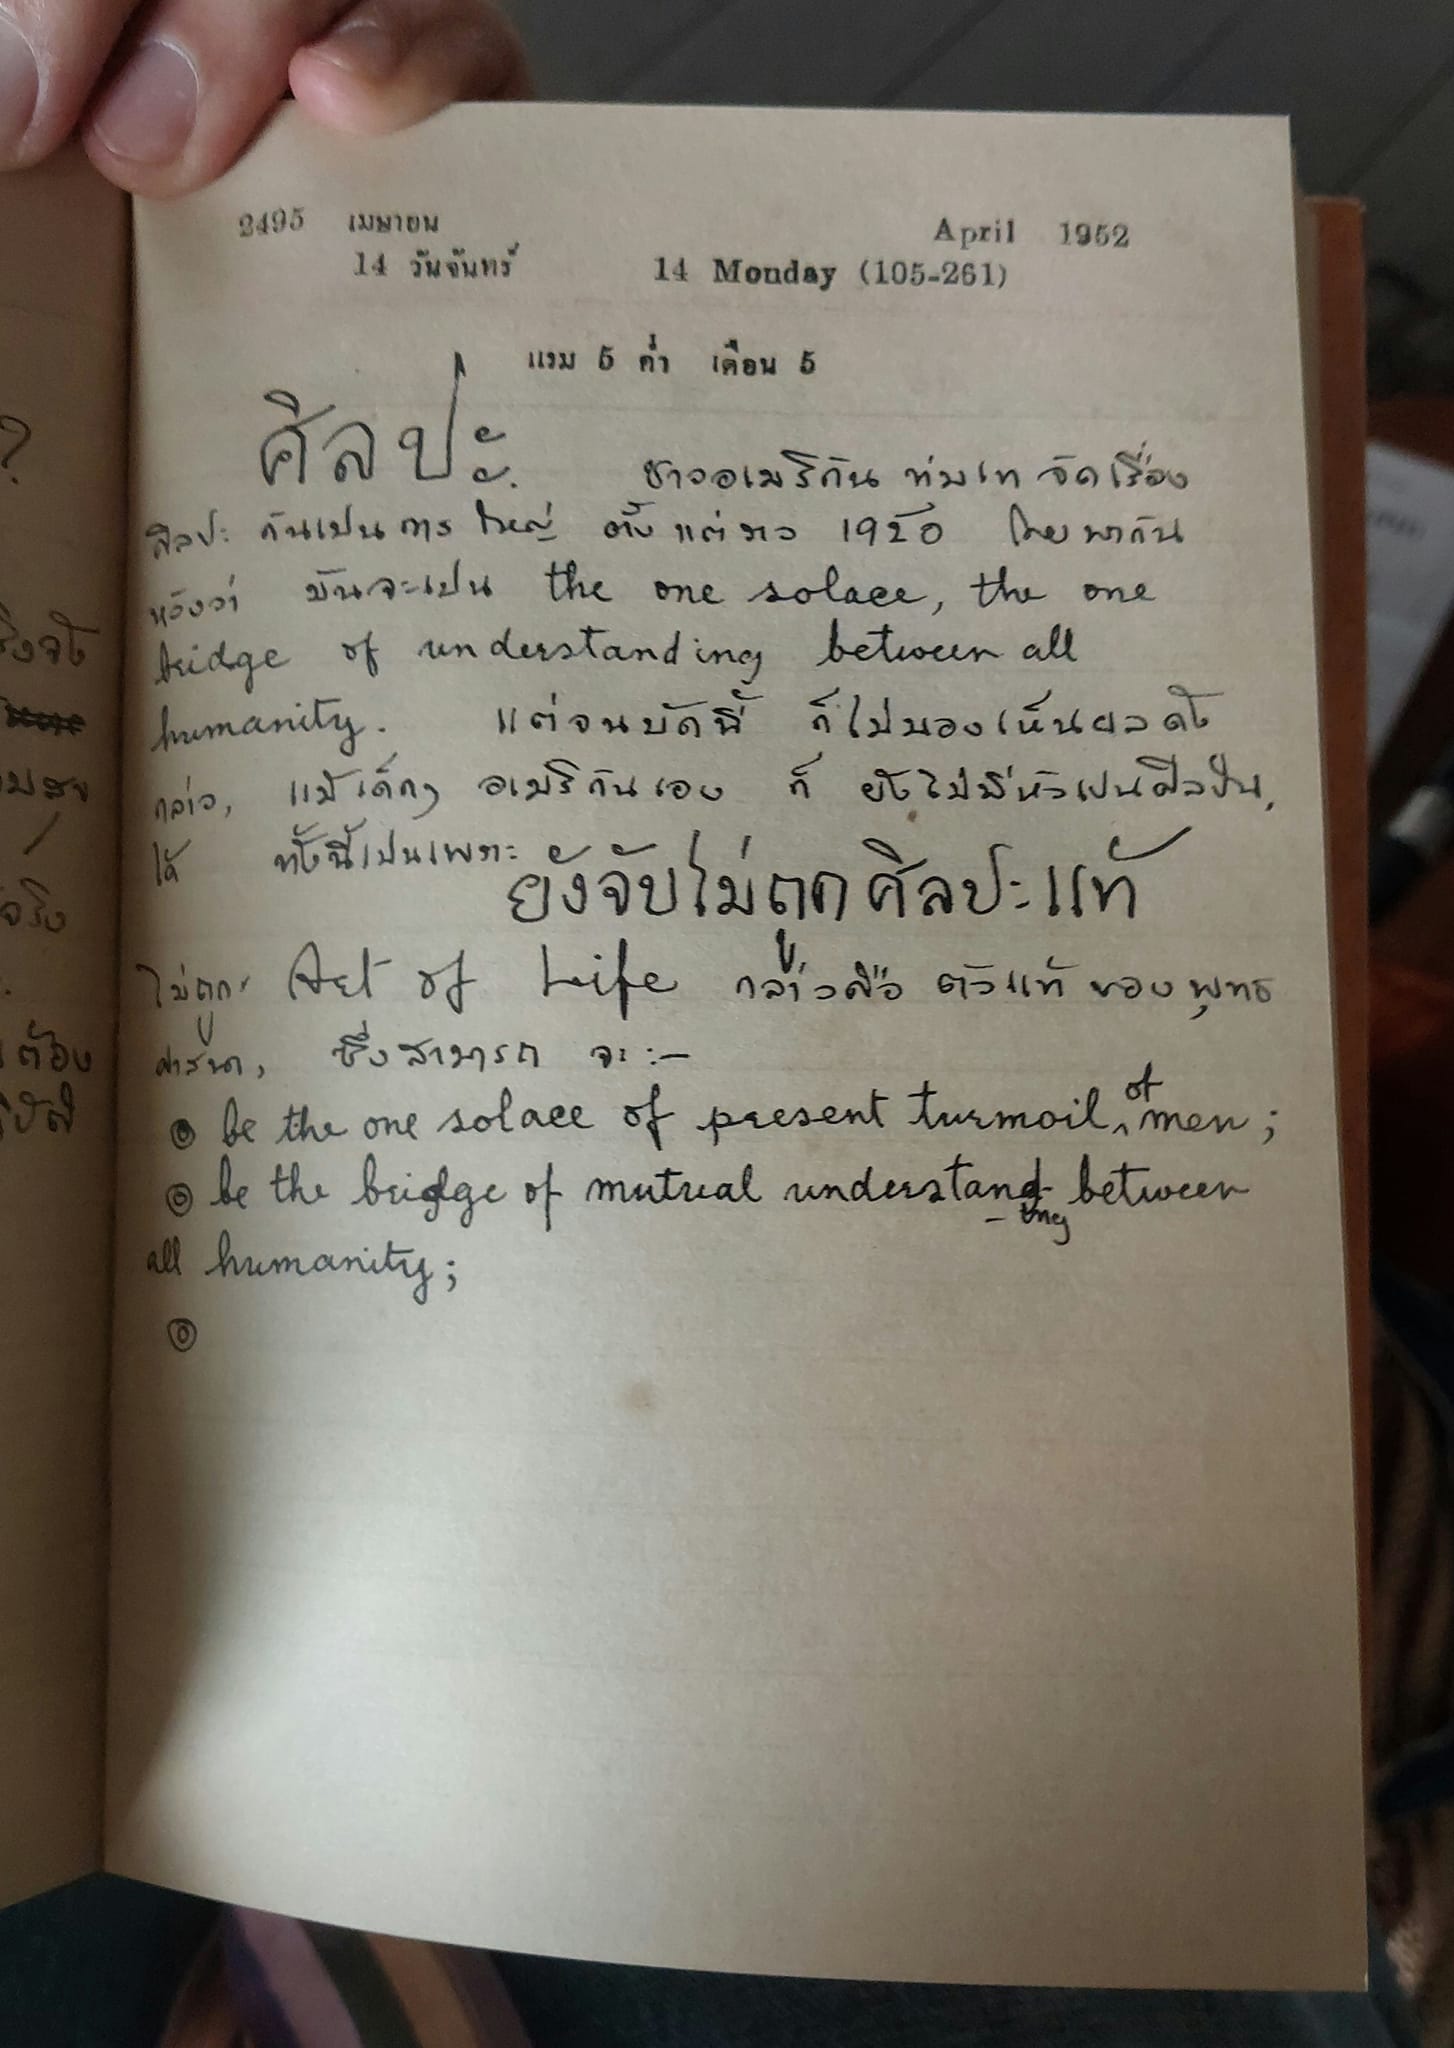 2495 เมษายน April 1952
14 วันจันทร์ 14 Monday (105-261)
แรม 5 ค่ำ เดือน 5
ศิลปะ. ชาวอเมริกัน ทุ่มเท จัดเรื่อง
ศิลปะ กันเป็นการใหญ่ ตั้งแต่ราว 1920 โดยพากัน
หวังว่า มันจะเป็น the one solace, the one
bridge of understanding between all
humanity. แต่จนบัดนี้ ก็ไม่มองเห็นผลดัง
กล่าว, แม้เด็กๆ อเมริกันเอง ก็ ยังไม่มีหัวเป็นศิลปิน,
ได้ ทั้งนี้เป็นเพราะ
ยังจับไม่ถูกศิลปะแท้
ไม่ถูก Art of Life กล่าวคือ ตัวแท้ ของพุทธ
ศาสนา, ซึ่งสามารถ จะ :—
◎ be the one solace of present turmoil, of men;
◎ be the bridge of mutual understand-ing between
all humanity;
◎
?
ต้อง